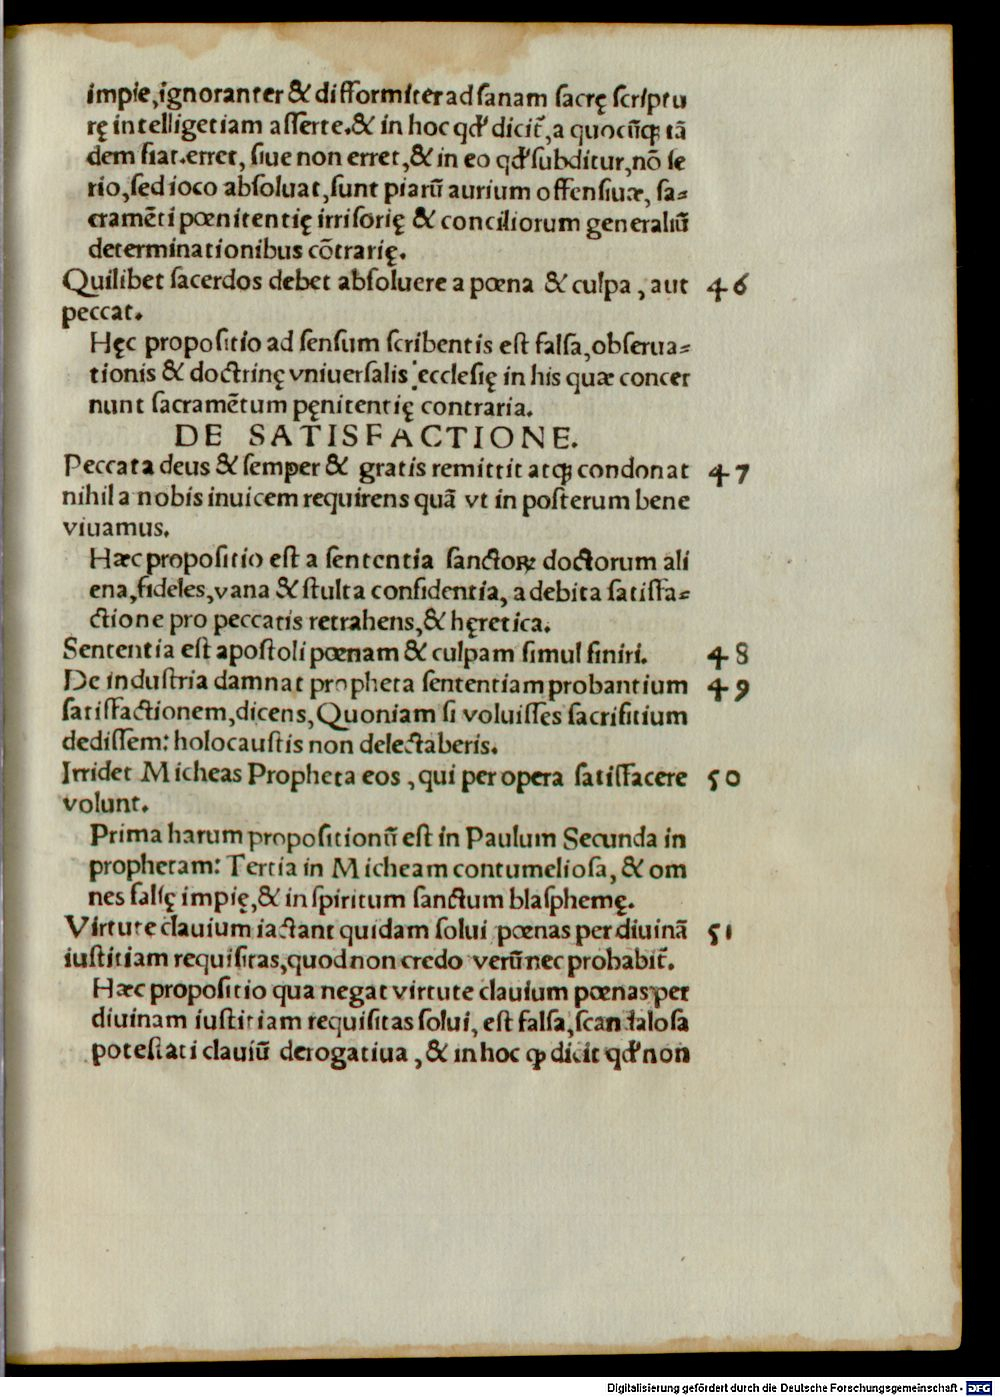 impie,ignoranter & difformiter ad sanam sacrę scriptu
rę intelligētiam asserte.& in hoc qđ dicit̄,a quocūqꝫ tā
dem fiat.erret, siue non erret,& in eo qđ subditur,nō se
rio,sed ioco absoluat,sunt piarū aurium offensiuæ, sa⸗
cramēti pœnitentię irrisorię & conciliorum generaliū
determinationibus cōtrarię.
Quilibet sacerdos debet absoluere a pœna & culpa, aut 46
peccat.
Hęc propositio ad sensum scribentis est falsa,obserua⸗
tionis & doctrinę vniuersalis ecclesię in his quæ concer
nunt sacramētum pęnitentię contraria.
DE SATISFACTIONE.
Peccata deus & semper & gratis remittit atqꝫ condonat 47
nihil a nobis inuicem requirens quā vt in posterum bene
viuamus.
Hæc propositio est a sententia sanctoꝝ doctorum ali
ena,fideles,vana & stulta confidentia, a debita satisfa⸗
ctione pro peccatis retrahens,& hęretica.
Sententia est apostoli pœnam & culpam simul finiri. 48
De industria damnat propheta sententiam probantium 49
satisfactionem,dicens,Quoniam si voluisses sacrifitium
dedissem: holocaustis non delectaberis.
Irridet Micheas Propheta eos, qui per opera satisfacere 50
volunt.
Prima harum propositionū est in Paulum Secunda in
prophetam: Tertia in Micheam contumeliosa, & om
nes falsę impię,& in spiritum sanctum blasphemę.
Virtute clauium iactant quidam solui pœnas per diuinā 51
iustitiam requisitas,quod non credo verū nec probabit̄.
Hæc propositio qua negat virtute clauium pœnas per
diuinam iustitiam requisitas solui, est falsa,scandalosa
potestati clauiū derogatiua, & in hoc ꝙ dicit qđ non
Digitalisierung gefördert durch die Deutsche Forschungsgemeinschaft - DFG